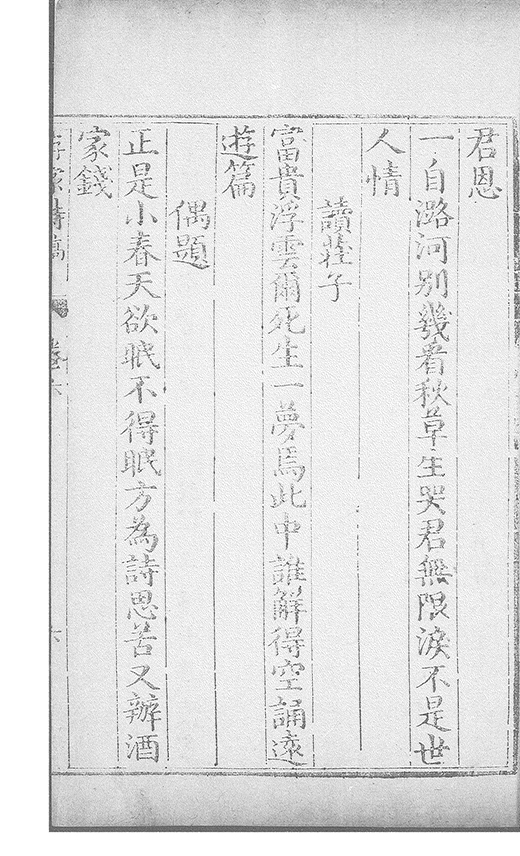 君恩
一自潞河別幾看秋草生哭君無限淚不是世
人情
讀莊子
富貴浮雲爾死生一夢焉此中誰解得空誦遠
遊篇
偶題
正是小春天欲眠不得眠方為詩思苦又辦酒
家錢
詩稿 卷六 六